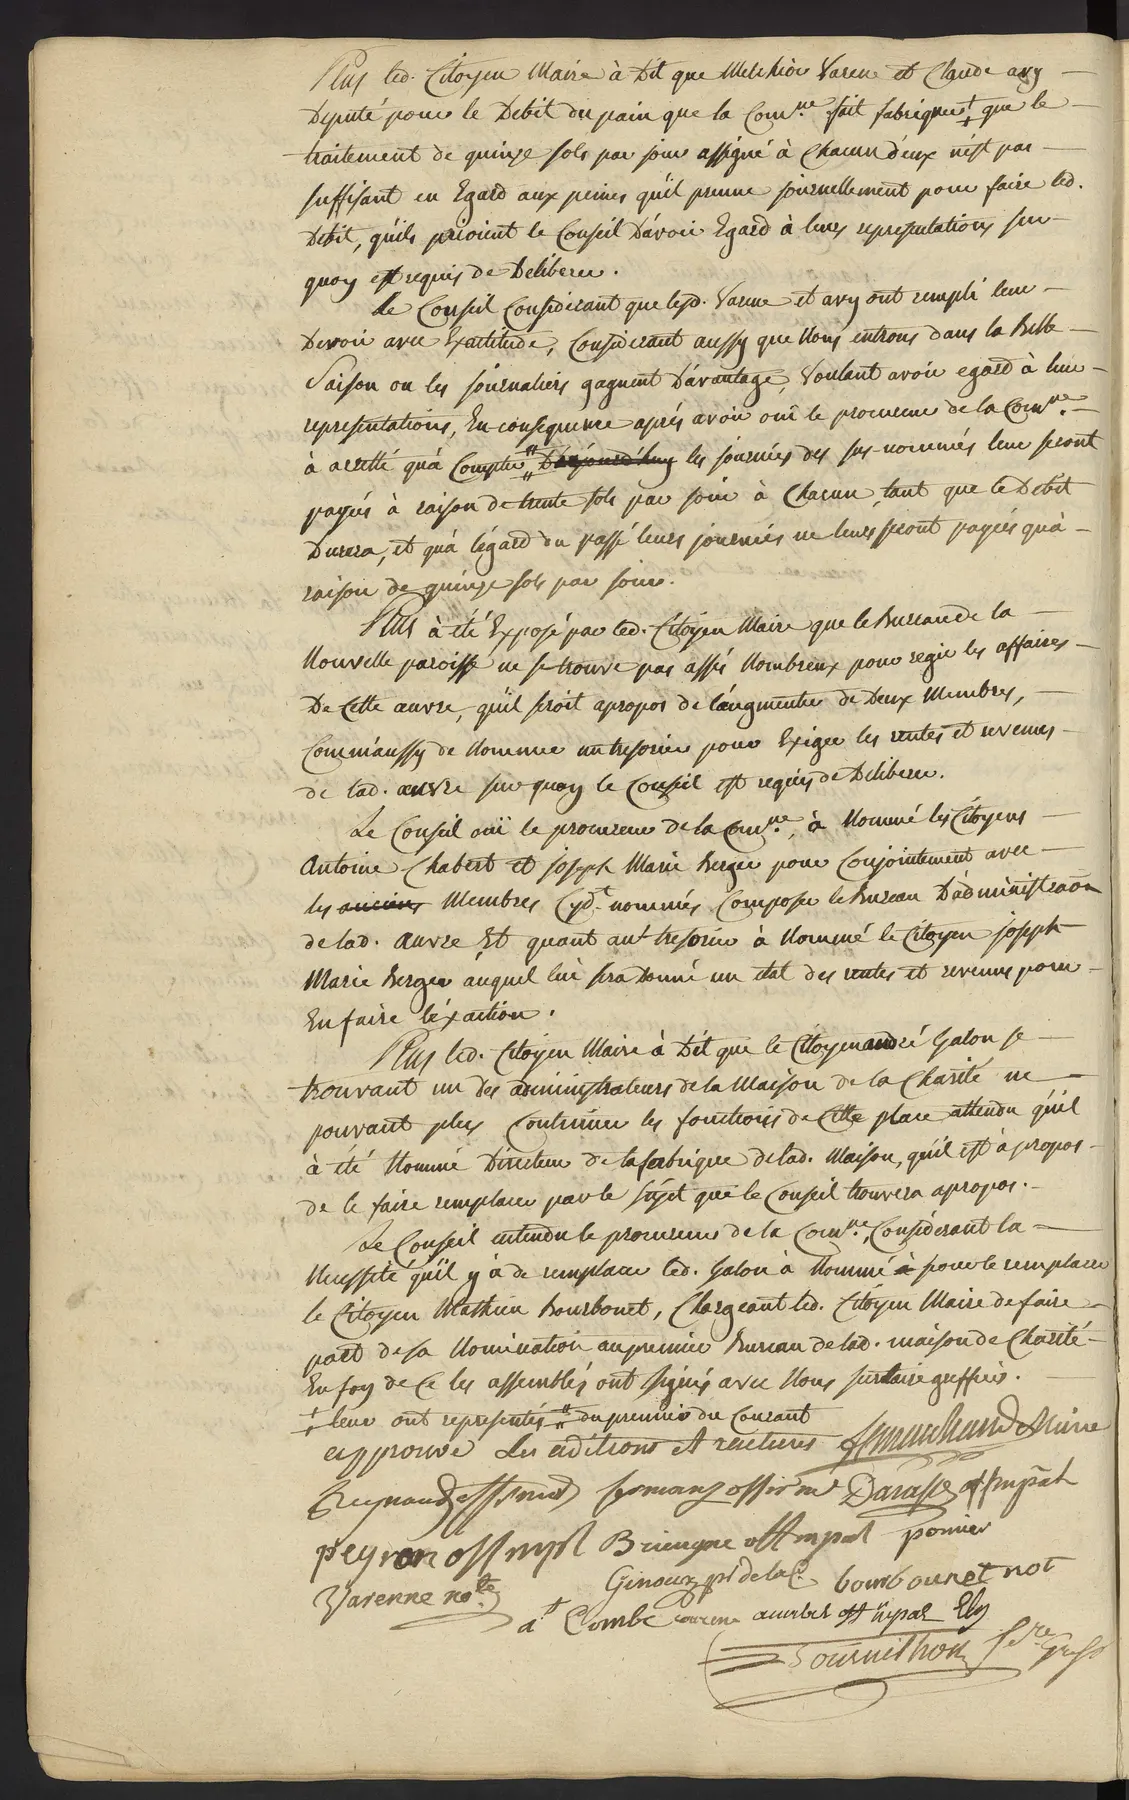 Plus led. Citoyen Maire à Dit que Melchior Varene et Claude avy
Deputé pour le Debit du pain que la Com.ne fait fabriquer ‡ que le
traitement de quinze sols par jour assigné à Chacun d'eux n'est pas
suffisant eu Egard aux peines qu'il prenne journellement pour faire led.
Debit, qu'ils prioient le Conseil D'avoir Egard à leurs representations sur
quoy est requis de Deliberer.
Le Conseil Considerant que lesd. Varene et avy ont rempli leur
Devoir avec Exactitude, Considerant aussy que Nous entrons dans la Belle
Saison ou les journaliers gagnent D'avantage, Voulant avoir egard à leur
representations, En consequence aprés avoir oui le procureur de la Com.ne
à arretté qu'à Compter " Daujourd'huy les journées des sus-nommés leur seront
payés à raison de trente sols par jour à Chacun, tant que le Debit
Durera, et qu'à l'égard du passé leurs journées ne leurs seront payées qu'à
raison de quinze sols par jour.
Plus à été Exposé par led. Citoyen Maire que le Bureau de la
Nouvelle paroisse ne se trouve pas assés Nombreux pour regir les affaires
De Cette œuvre, qu'il seroit apropos de l'augmenter de Deux Membres,
Comm'aussy de Nommer un tresorier pour Exiger les rentes et revenus
de lad. œuvre sur quoy le Conseil est requis de Deliberer.
Le Conseil oüi le procureur de la Com.ne, à Nommé les Citoyens
Antoine Chabert et joseph Marie Berger pour Conjointement avec
les anciens Membres Cyd.t nommés Composer le Bureau D'administraõn
de lad. œuvre, Et quant au tresorier à Nommé le Citoyen joseph
Marie Berger auquel lui sera Donné un état des rentes et revenus pour
En faire l'éxaction.
Plus led. Citoyen Maire à Dit que le Citoyen andré Galon se
trouvant un des administrateurs de la Maison de la Charité ne
pouvant plus Continuer les fonctions de Cette place attendu qu'il
à été Nommé Directeur de la fabrique de lad. Maison, qu'il est à propos
de le faire remplacer par le sujet que le Conseil trouvera apropos.
Le Conseil entendu le procureur de la Com.ne, Considerant la
Necessité qu'il y à de remplacer led. Galon à Nommé à pour le remplacer
le Citoyen Mathieu Bourbonet, Chargeant led. Citoyen Maire de faire
part de sa Nomination au premier Bureau de lad. maison de Charité
En foy de Ce les assemblés ont signés avec Nous secretaire greffier.
‡ leur ont representés " du premier du Courant
approuvé Les aditions et ratures Maire
Reynaud off. romany off.
peyron off mpl Brieugne off mpal pomier
Varenne no.re Ginoux pr de la C. bourbounet not
a.t Combe off mpal
Tournillon se.re greff